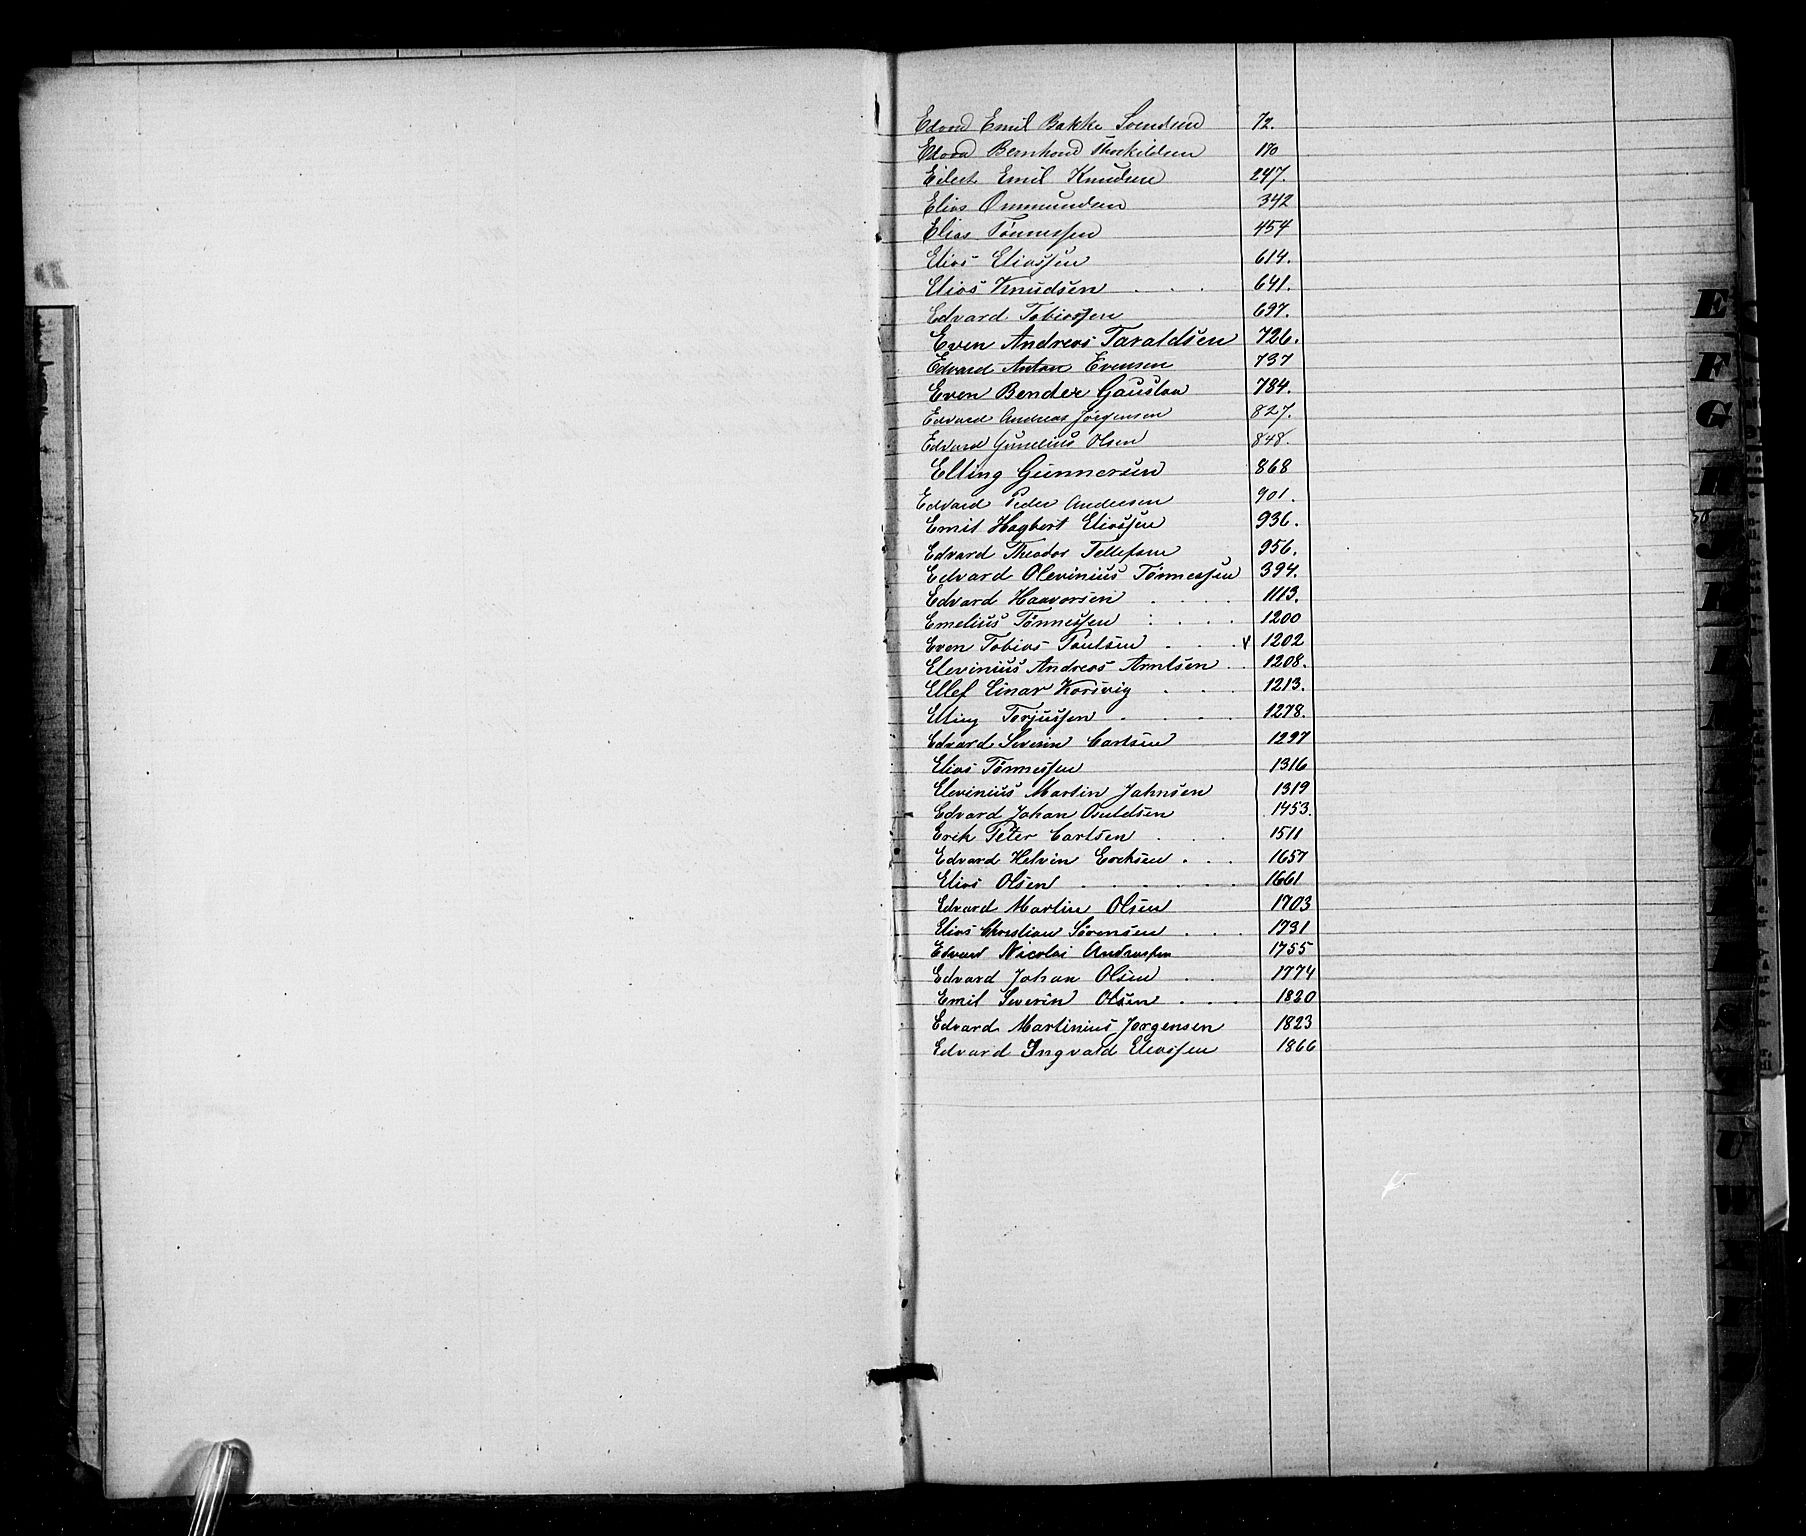 Edvard Emil Bakke Svendsen 72.
Edvard Bernhard Thorkildsen 170
Eilert Emil Knudsen 247.
Elias Ommundsen 342
Elias Tönnessen 454
Elias Eliassen 614.
Elias Knudsen . . . 641.
Edvard Tobiassen 697.
Even Andreas Taraldsen 726.
Edvard Anton Evensen 737
Even Bender Gaustaa 784.
Edvard Andreas Jörgensen 827.
Edvard Gunelius Olsen 848.
Elling Gunnersen 868
Edvard Peder Andersen 901.
Emil Hagbart Eliassen 936.
Edvard Theodor Tellefsen 956.
Edvard Olevinius Tönnessen 394.
Edvard Haavorsen . . . . 1113.
Emelius Tönnessen . . . . 1200
Even Tobias Poulsen . . . x 1202
Elevinius Andreas Arntsen . . 1208.
Ellef Einar Korsvig . . . 1213.
Elling Torjussen . . . . 1278.
Edvard Severin Carlsen 1297
Elias Tönnessen 1316
Elevinius Martin Jahnsen 1319
Edvard Johan Osuldsen 1453.
Erik Peter Carlsen . . . 1511
Edvard Helvin Ericksen . . . 1657
Elias Olsen . . . . . . 1661
Edvard Martin Olsen 1703
Elias Christian Sörensen . . . 1731
Edvard Nicolai Andreassen 1755
Edvard Johan Olsen . . . 1774
Emil Severin Olsen . . . 1820
Edvard Martinius Jorgensen 1823
Edvard Ingvald Eliassen 1866
E
F
G
H
J
K
U
W